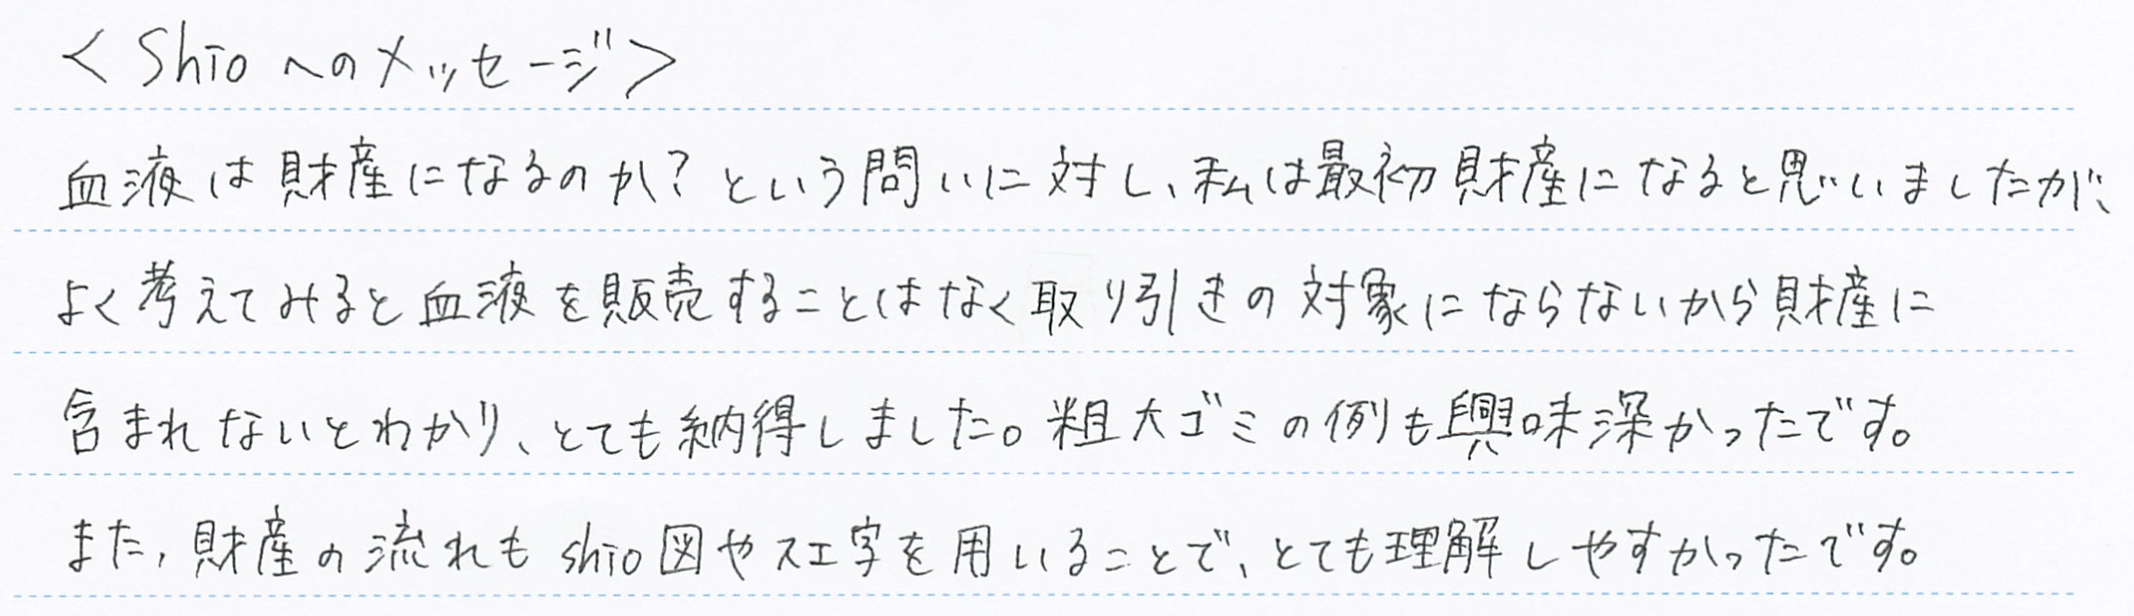 <Shioへのメッセージ>
血液は財産になるのか?という問いに対し、私は最初財産になると思いましたが、
よく考えてみると血液を販売することはなく取り引きの対象にならないから財産に
含まれないとわかり、とても納得しました。粗大ゴミの例も興味深かったです。
また,財産の流れもshio図やス工字を用いることで、とても理解しやすかったです。